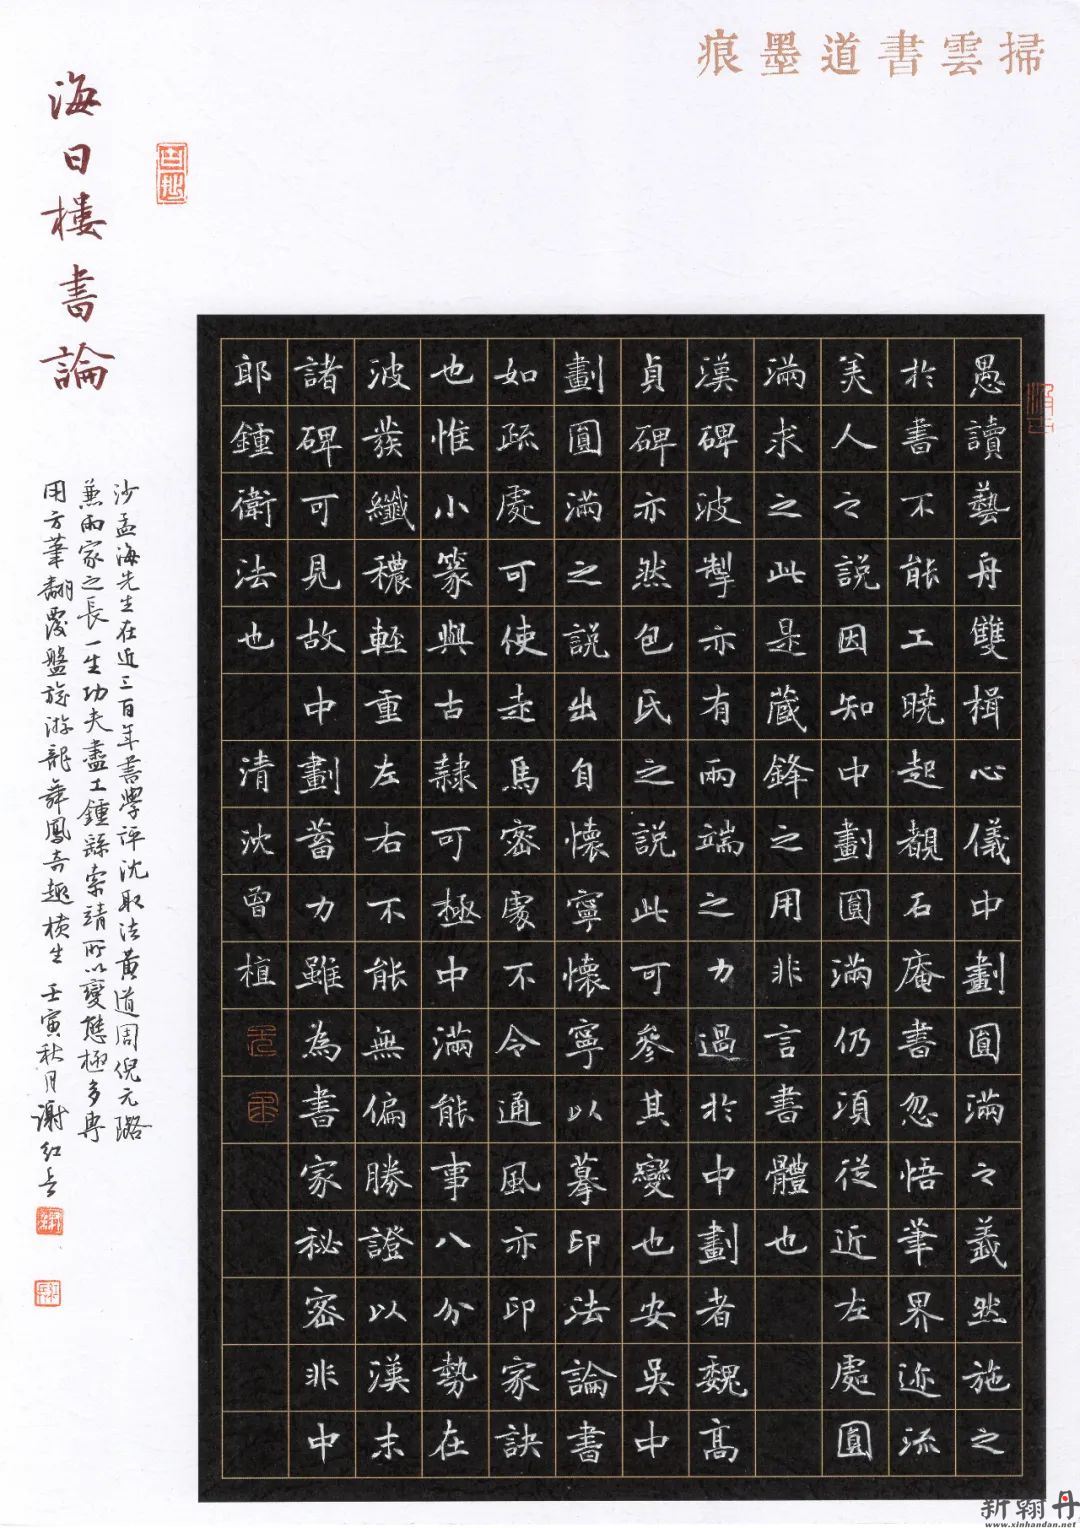 掃雲書道墨痕
愚讀藝舟雙楫心儀中劃圓滿之義然施之
於書不能工曉起觀石庵書忽悟筆界迹流
美人之說因知中劃圓滿仍須從近左處圓
滿求之此是蔵鋒之用非言書體也
漢碑波掣亦有兩端之力過於中劃者魏高
貞碑亦然包氏之說此可參其變也安吳中
劃圓滿之說出自懷寧懷寧以摹印法論書
如疏處可使走馬密處不令通風亦印家訣
也惟小篆與古隸可極中滿能事八分勢在
波發纖穠輕重左右不能無偏勝證以漢末
諸碑可見故中劃蓄力雖為書家秘密非中
郎鍾衛法也 清沈曾植
海日樓書論
沙孟海先生在近三百年書學評沈取法黃道周倪元璐
兼兩家之長一生功夫盡工鍾繇索靖所以變態極多專
用方筆翻覆盤旋游龍舞鳳奇趣橫生 壬寅秋月謝紅兵
新翰丹
www.xinhandan.net